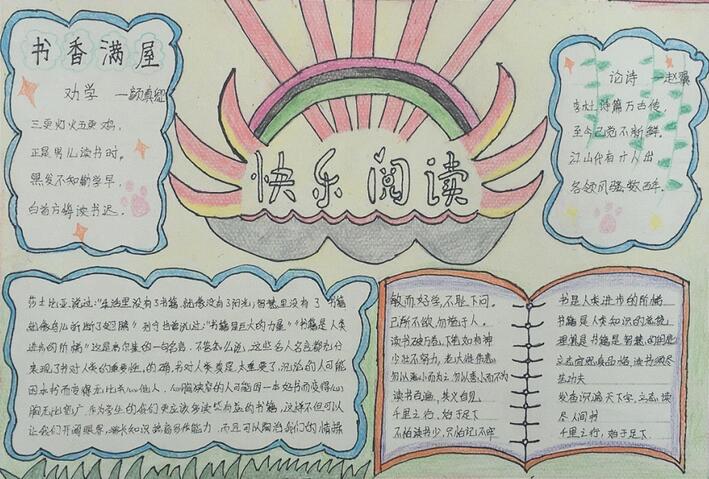 书香满屋
劝学 —颜真卿
三更灯火五更鸡,
正是男儿读书时。
黑发不知勤学早,
白首方悔读书迟。
快乐阅读
论诗 —赵翼
李杜诗篇万古传,
至今已觉不新鲜。
江山代有才人出
各领风骚数百年。
莎士比亚说过:"生活里没有了书籍,就像没有了阳光;智慧里没有了书籍
就像鸟儿折断了翅膀" 列宁也曾说过:"书籍是巨大的力量" "书籍是人类
进步的阶梯" 这是高尔基的一句名言, 不管怎么说,这些名人名言都充分
表现了书对人类的重要性,的确,书对人类真是太重要了,沉沦的人可能
因为书而变得无比
胸无比宽广,作为学生的我们更应该多读些有益的书籍,这样不但可以
让我们开阔眼界,增长知识
敏而好学,不耻下问。
己所不欲,勿施于人。
读书破万卷,下笔如有神
少壮不努力,老大徒伤悲
勿以恶小而为之,勿以善小而不为
读书百遍,其义自见
千里之行,始于足下
不怕读书少,只怕记不牢
书是人类进步的阶梯
书籍是人类知识的总统
理想是书籍是智慧的钥匙
读书须尽
苦功夫
发奋识遍天下字,立志读
尽人间书
千里之行,始于足下